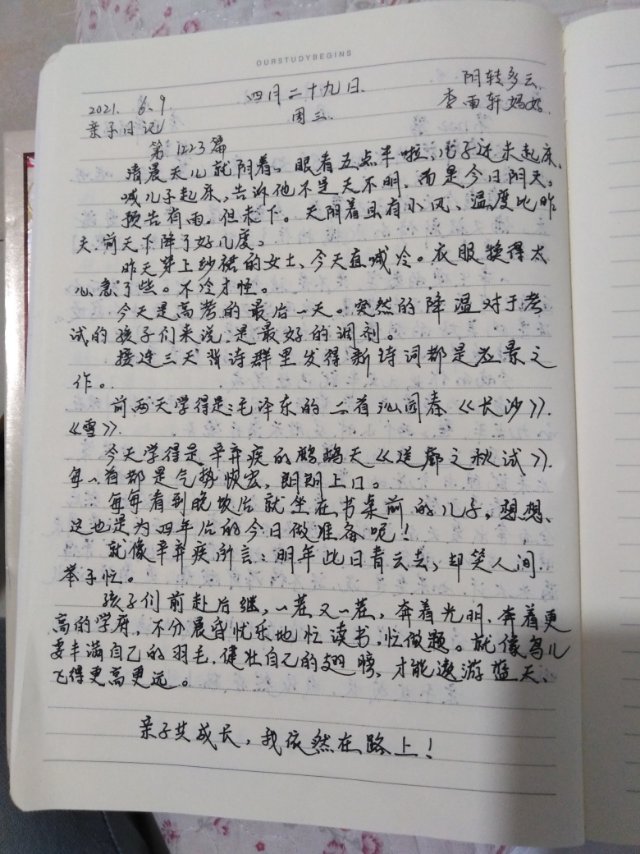 OURSTUDYBEGINS
2021. 6. 9. 四月二十九日 阴转多云
亲子日记 周三 查雨轩妈妈
第1223篇
清晨天儿就阴着。眼看五点半啦,儿子还未起床,
喊儿子起床,告诉他不是天不明,而是今日阴天。
预告有雨,但未下。天阴着且有小风、温度比昨
天、前天下降了好几度。
昨天穿上纱裙的女士、今天直喊冷。衣服换得太
心急了些。不冷才怪。
今天是高考的最后一天。突然的降温对于考
试的孩子们来说,是最好的调剂。
接连三天背诗群里发得新诗词都是应景之
作。
前两天学得是:毛泽东的二首沁园春《长沙》、
《雪》
今天学得是辛弃疾的鹧鸪天《送廓之秋试》.
每一首都是气势恢宏,朗朗上口。
每每看到晚饭后就坐在书桌前的儿子,想想,
这也是为四年后的今日做准备呢!
就像辛弃疾所言:明年此日青云去,却笑人间
举子忙。
孩子们前赴后继,一茬又一茬,奔着光明,奔着更
高的学府,不分晨昏忧乐地忙读书,忙做题。就像鸟儿
要丰满自己的羽毛,健壮自己的翅膀,才能遨游蓝天、
飞得更高更远。
亲子共成长,我依然在路上!